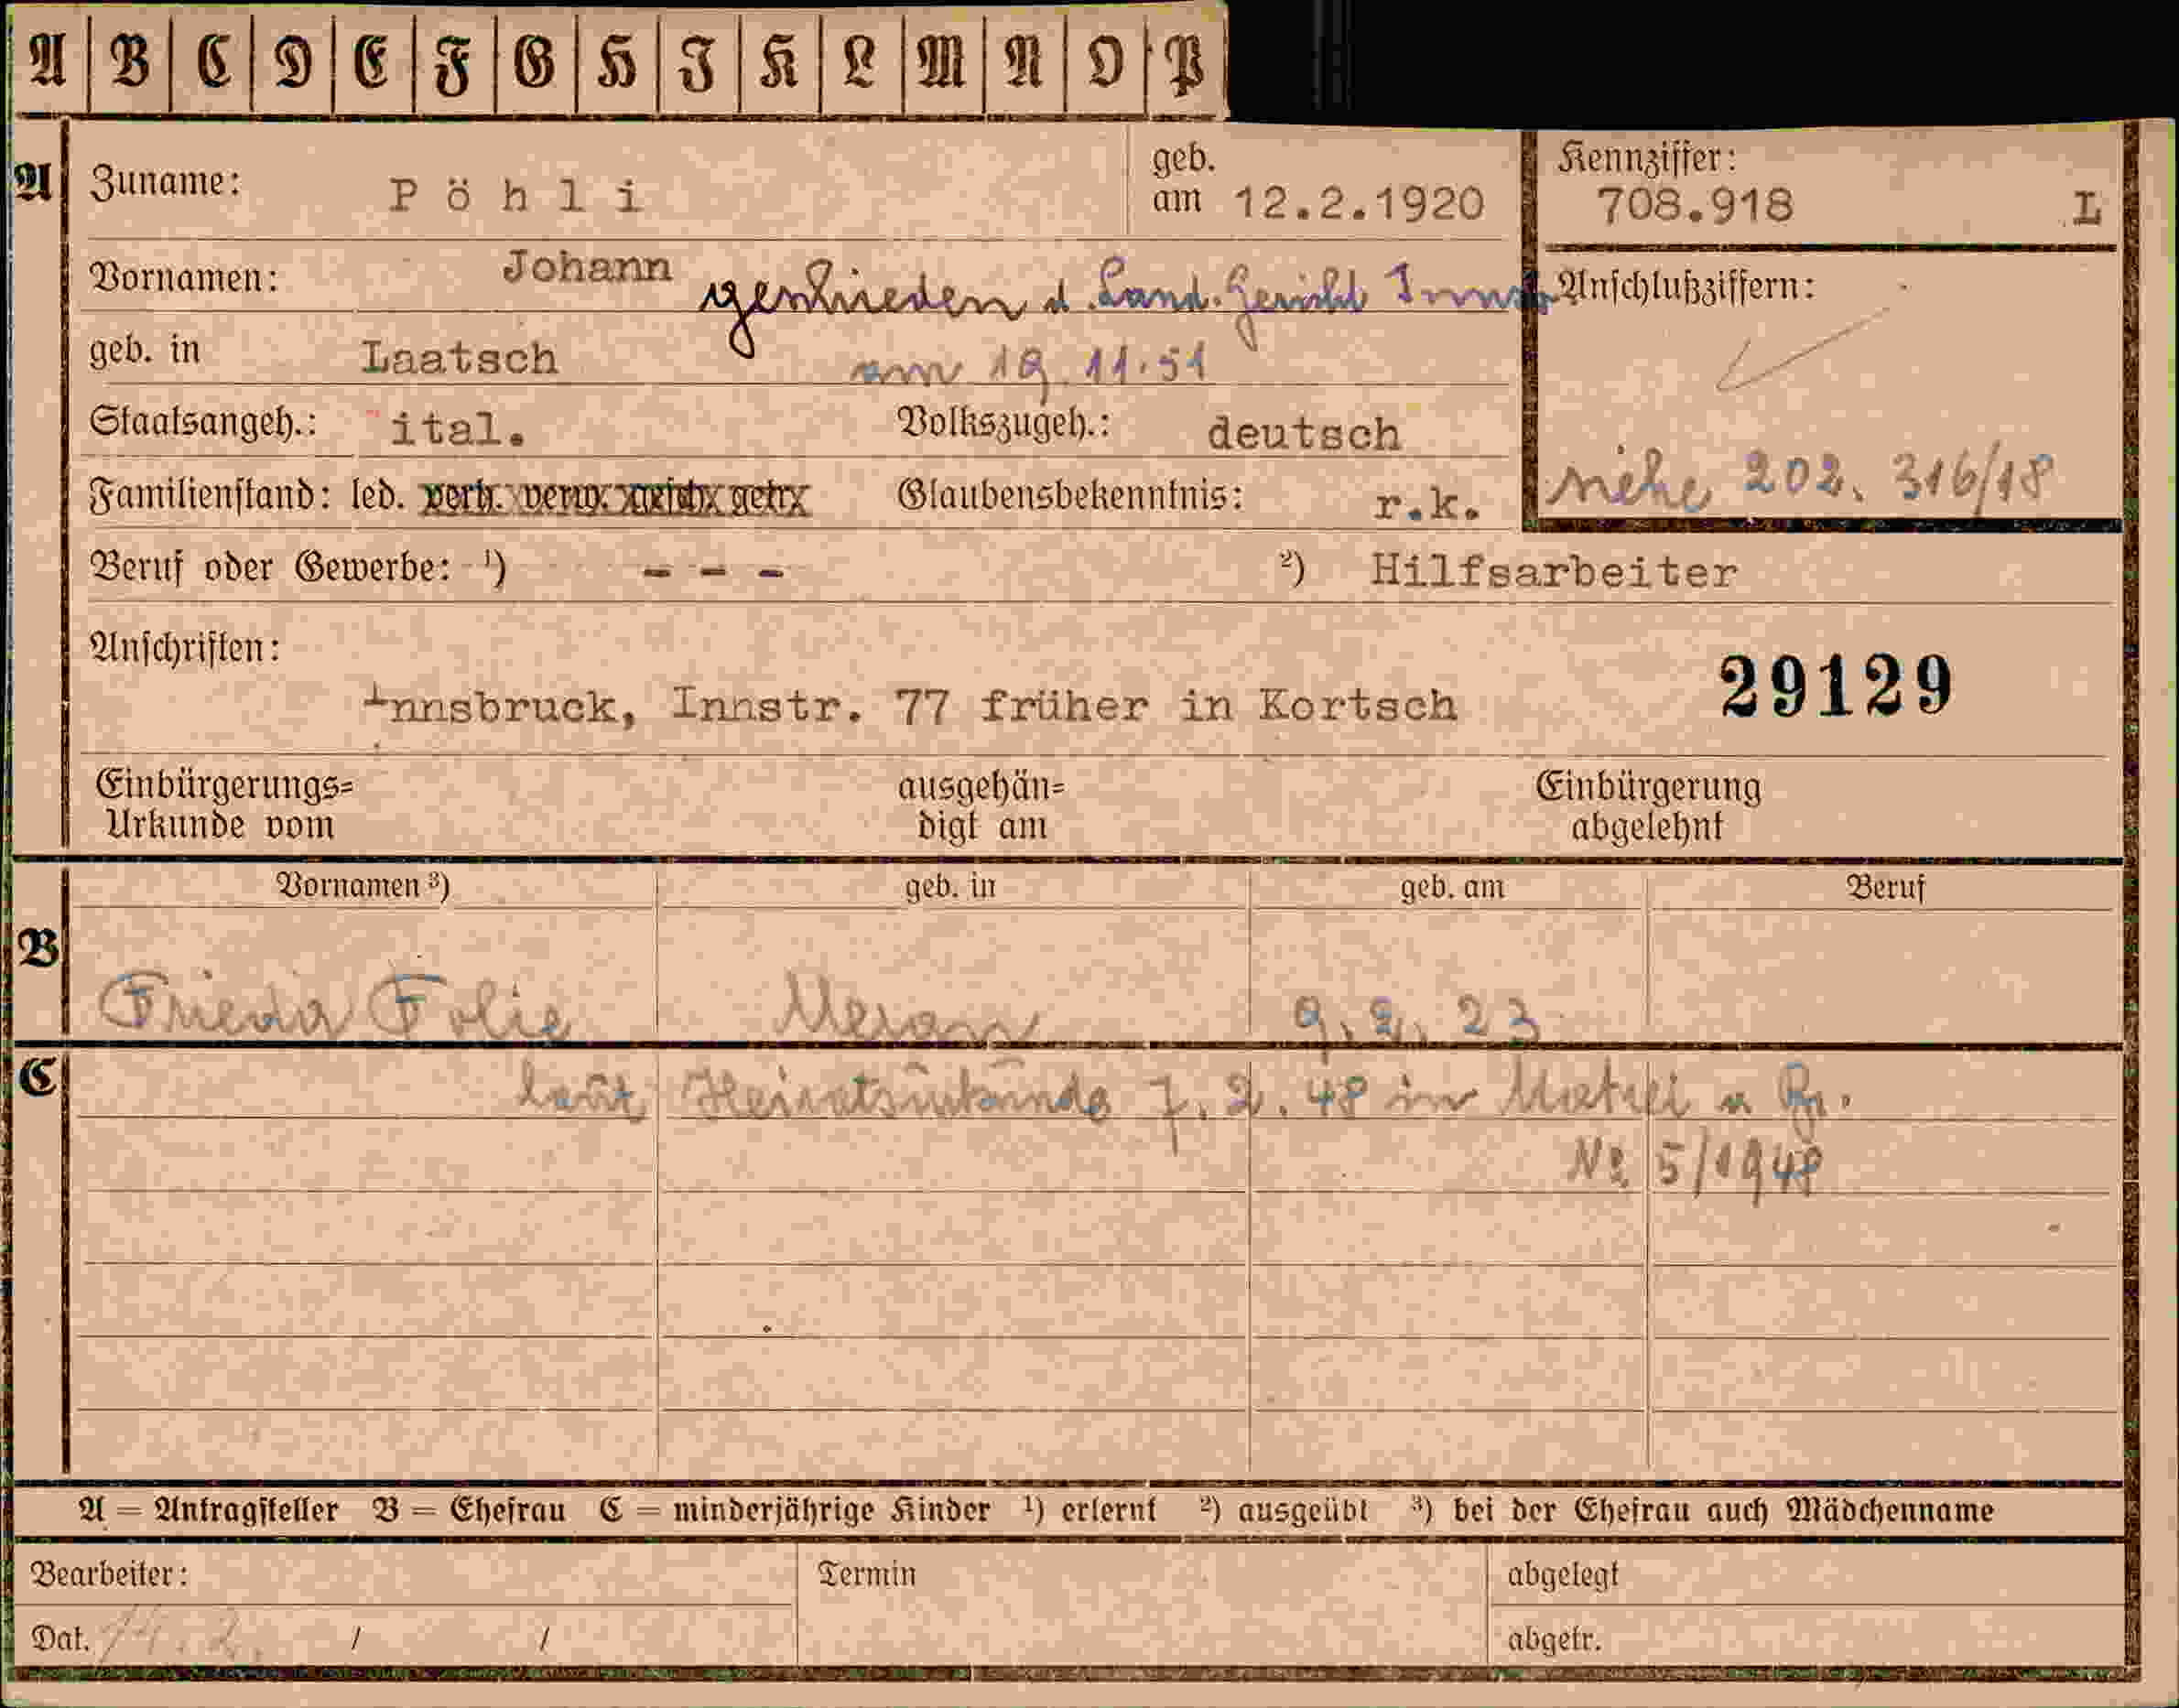 A B C D E F G H I K L M N O P
A Zuname: Pöhli geb. am 12.2.1920 Kennziffer: 708.918 L
Vornamen: Johann geschieden d. Land. Gericht Innsb Anschlußziffern:
geb. in Laatsch am 19.11.51
Staatsangeh.: ital. Volkszugeh.: deutsch
siehe 202. 316/18
Familienstand: led. verh. verw. gesch. getr. Glaubensbekenntnis: r.k.
Beruf oder Gewerbe: ¹) - - - ²) Hilfsarbeiter
Anschriften:
Innsbruck, Innstr. 77 früher in Kortsch 29129
Einbürgerungs= ausgehän= Einbürgerung
Urkunde vom digt am abgelehnt
Vornamen ³) geb. in geb. am Beruf
B
Frieda Folie Meran 9.2.23
C laut Heiratsurkunde 7.2.48 in Matrei a Br.
No 5/1948
A = Antragsteller B = Ehefrau C = minderjährige Kinder ¹) erlernt ²) ausgeübt ³) bei der Ehefrau auch Mädchenname
Bearbeiter: Termin abgelegt
Dat. 14.2. / / abgetr.